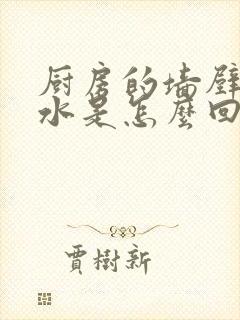 厨房的墙壁
水是怎麼回
賈樹新